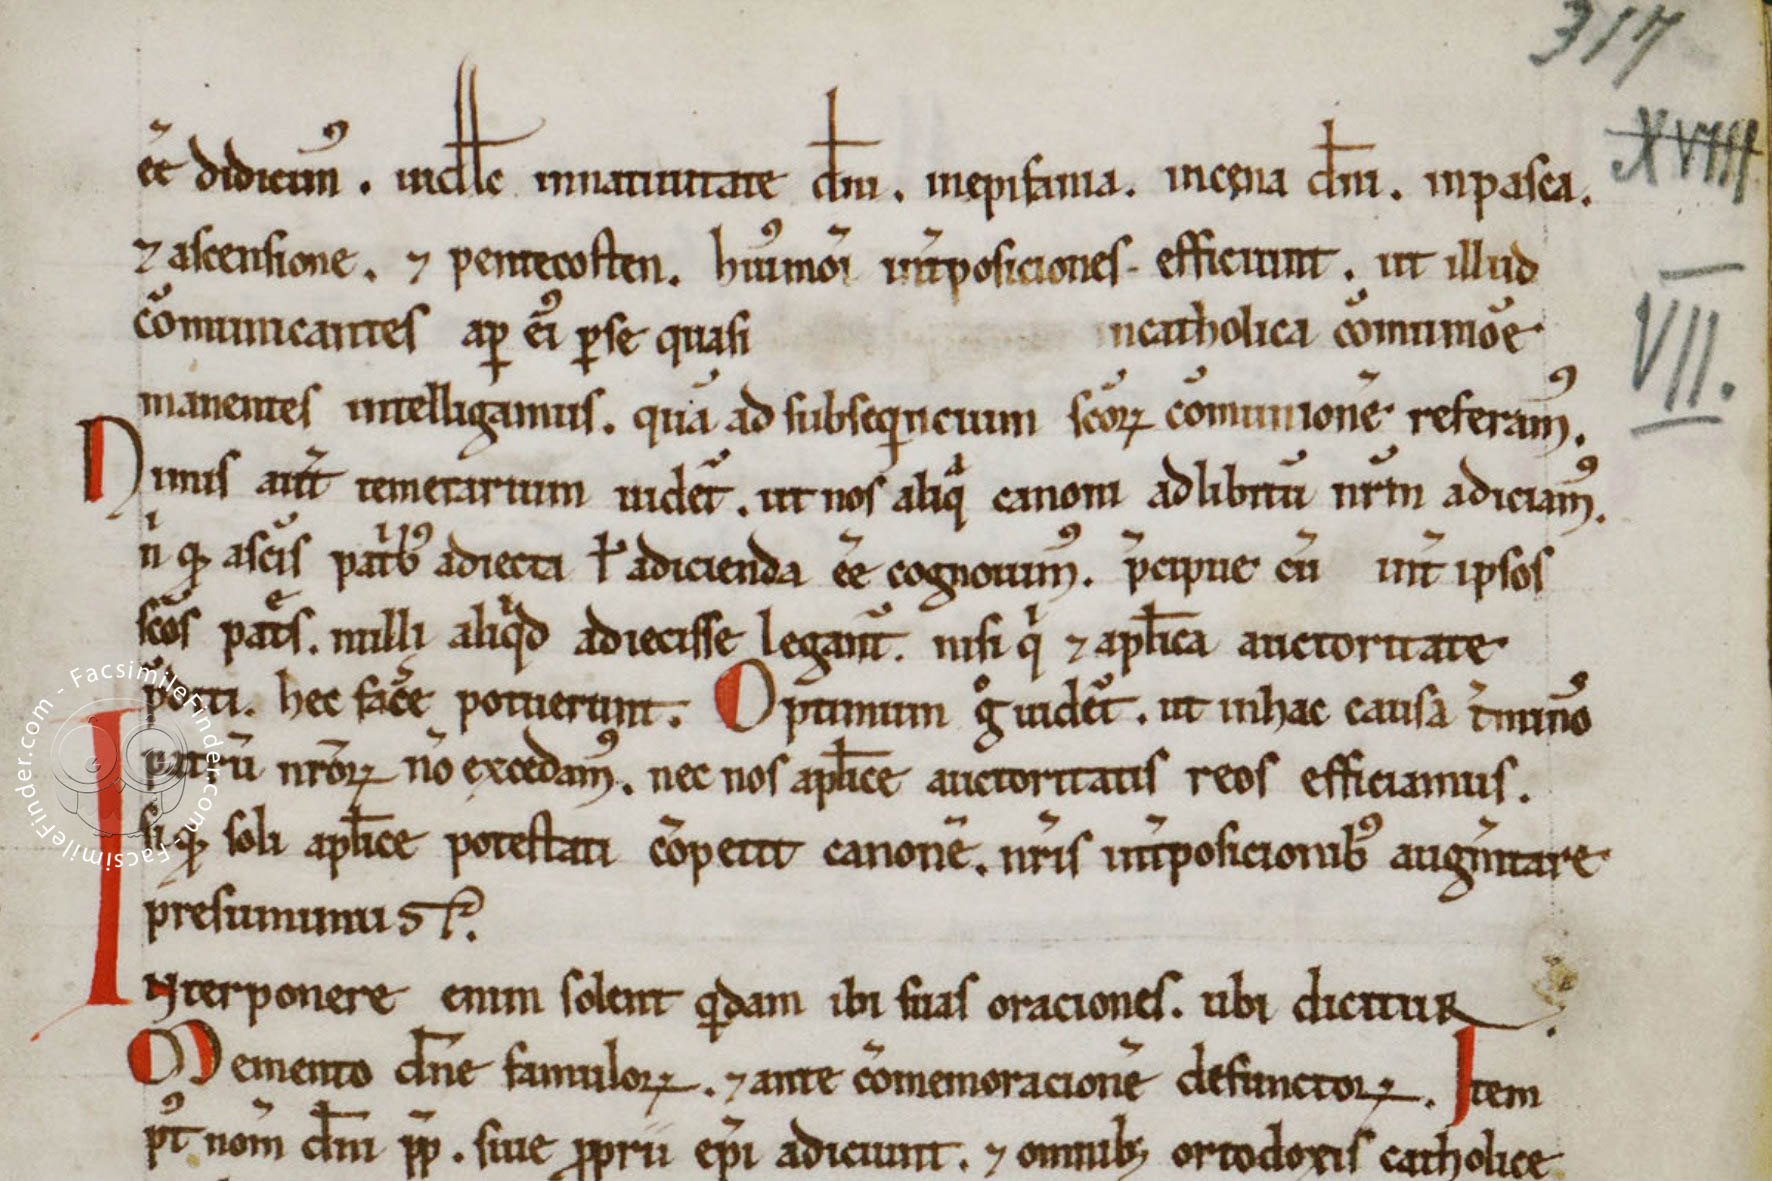 317
XVIII
ee͂ didicimꝰ . uidelicet innatiuitate dn̄i . inepifania . incena dn̄i . inpasca .
⁊ ascensione . ⁊ pentecosten . huiꝰmōi int̄posiciones . efficiunt . ut illud
VII .
cōmunicantes ap eiꝰ ꝑse quasi incatholica cōmunioē
manentes intelligamus . quā ad subsequencium scōꝝ cōmunionē referamꝰ .
Nimis aut̄ temerarium uidet̄ . ut nos aliqͣ canoni adlibitū nr̄m adiciamꝰ .
nͥ qͥ ascīs patribꝰ adiecta ł adicienda ee͂ cognouimꝰ . p̄cipue cū int̄ ipsos
scōs pat̄s . nulli aliqͥd adiecisse legant̄ . nisi qͥ ⁊ apl̄ica auctoritate
p̄diti . hec fac̄e potuerunt . Optimum gͦ uidet̄ . ut inhac causa t̄minō
patrū nr̄oꝝ nō excedamꝰ . nec nos apl̄ice auctoritatis reos efficiamus .
si qͦ soli apl̄ice potestati cōpetit canonē . nr̄is int̄posicionibꝰ augm̄tare
presumimus .
Interponere enim solent qͥdam ibi suas oraciones . ubi dicitur
Memento dn̄e famuloꝝ . ⁊ ante cōmemoracionē defunctoꝝ . Item
pꝰt nom̄ dn̄i pp̄ . siue ꝓprii ep̄i adiciunt . ⁊ omnibꝫ ortodoxis catholice
FacsimileFinder.com - FacsimileFinder.com - FacsimileFinder.com -